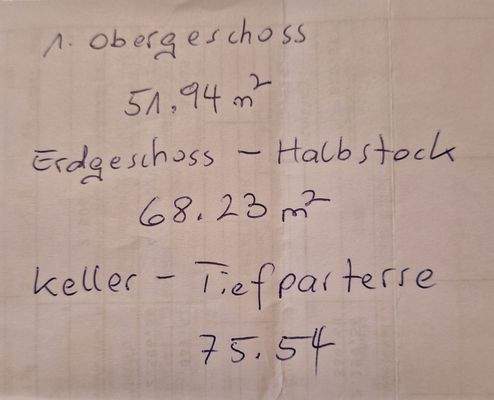 1. Obergeschoss
51.94 m²
Erdgeschoss - Halbstock
68.23 m²
Keller - Tiefparterre
75.54